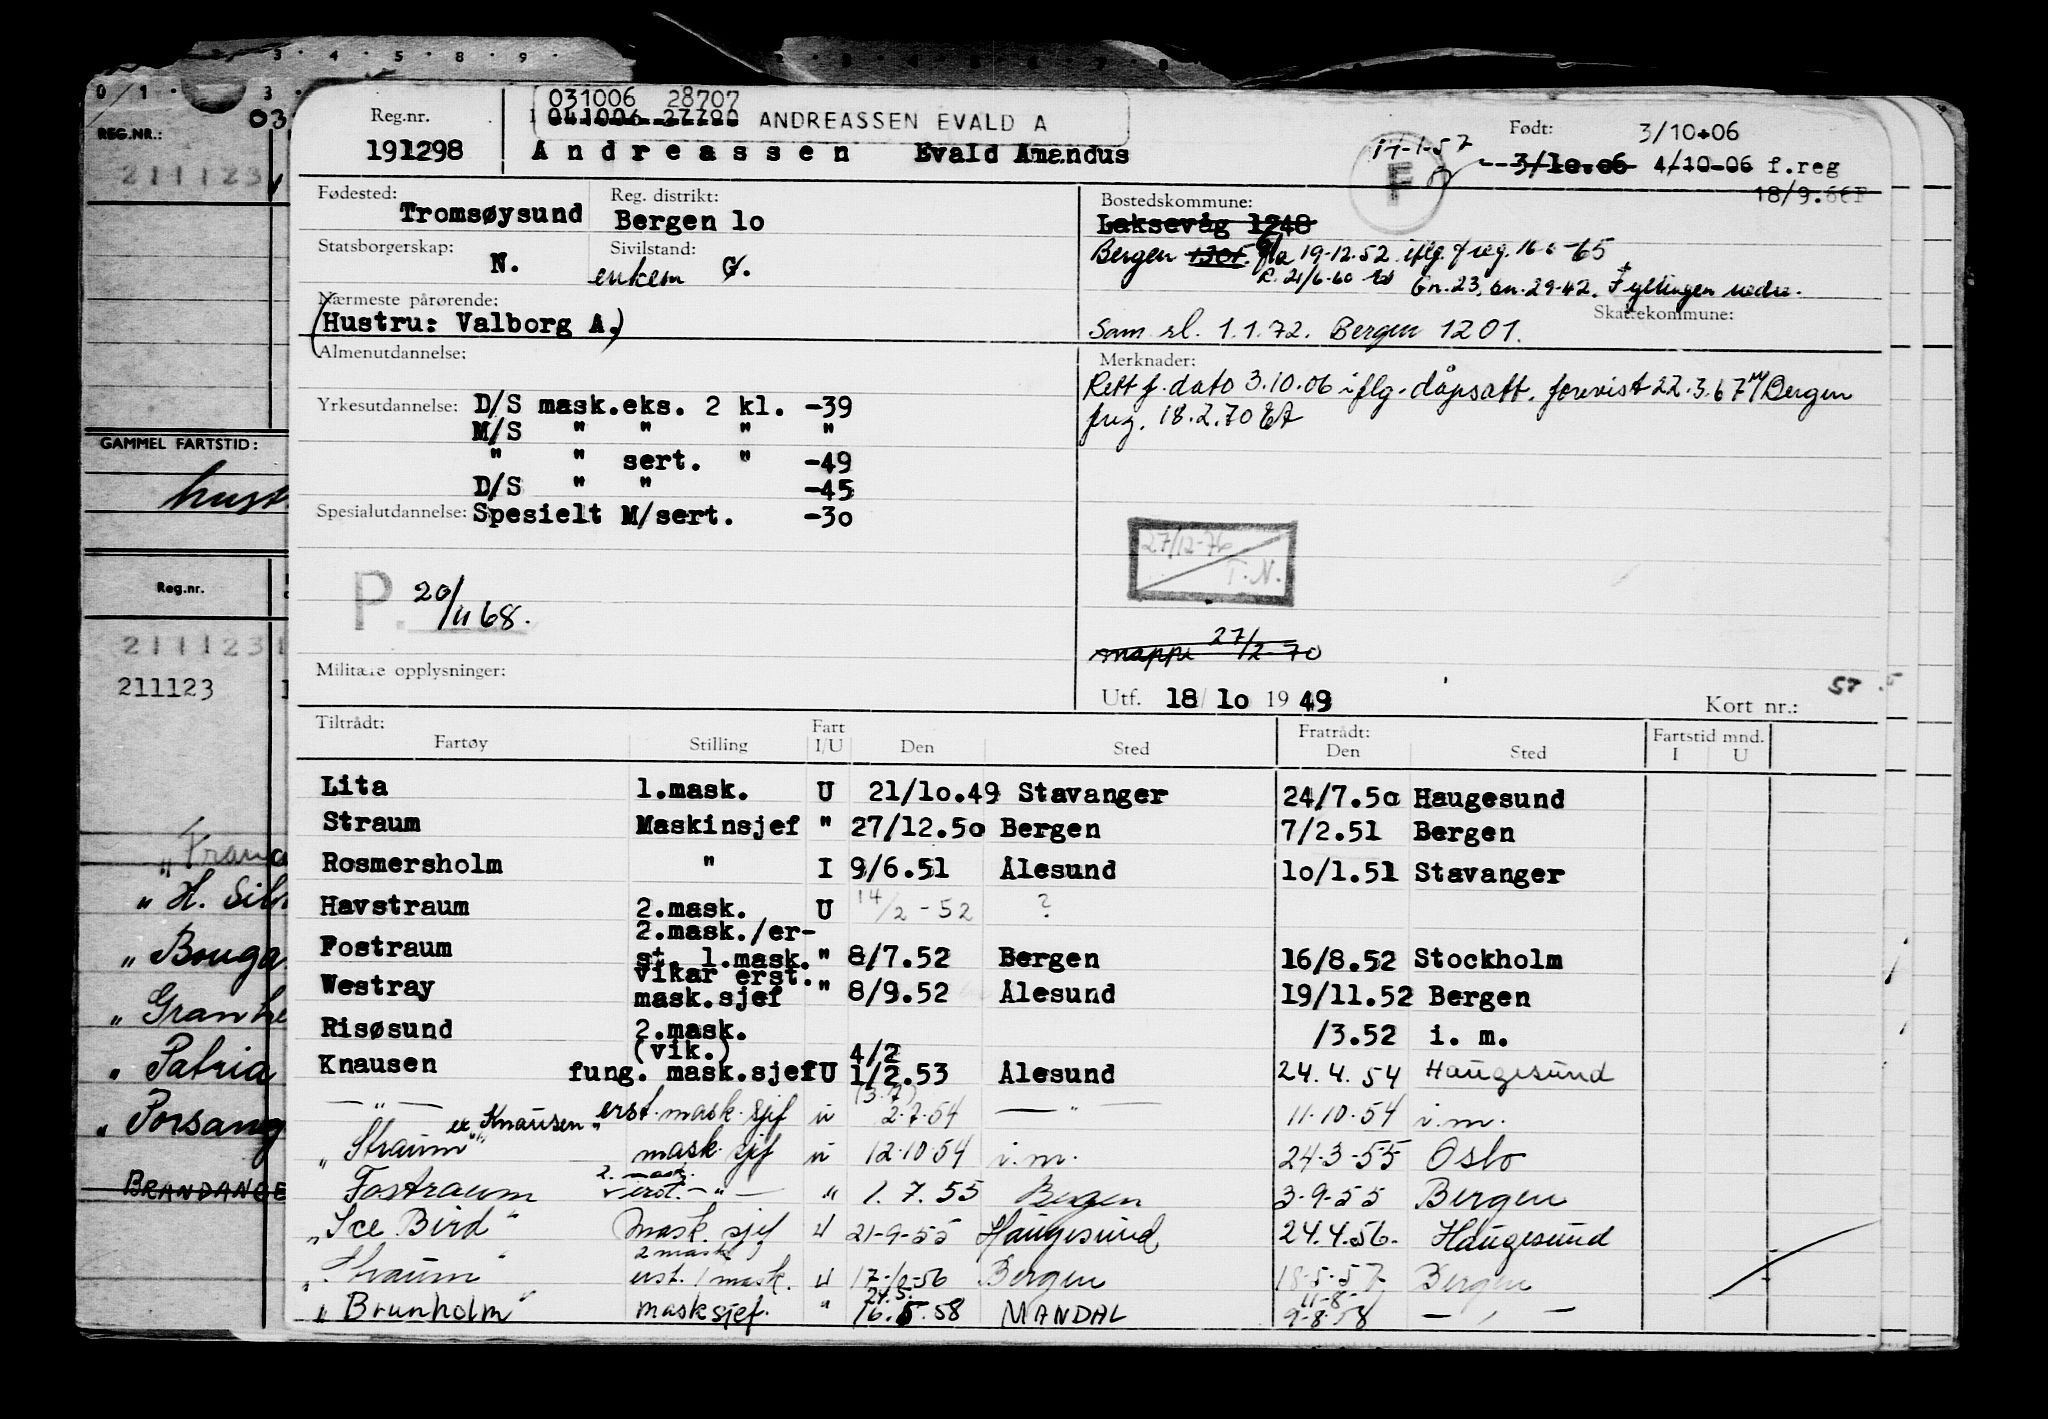 REG.NR.:
211123
GAMMEL FARTSTID:
Reg.nr.
211123
211123
" H. Silv
" Bouga
" Patria
" Porsang
BRANDANGE
031006 28707
041006 27780 ANDREASSEN EVALD A
Reg.nr.
191298
Andreassen Evald Amandus
17-1-57
F
Født: 3/10-06
3/10.06 4/10-06 f.reg
18/9.66
Fødested: Tromsøysund
Reg. distrikt: Bergen 10
Statsborgerskap: N.
Sivilstand: enkem G.
Nærmeste pårørende:
(Hustru: Valborg A.)
Bostedskommune:
Laksevåg 1248
Bergen 1301. fra 19-12.52 iflg. f reg. 16-6-65
R. 21/6-60
Gn.23, bn.29-42, Fyllingen nedre.
Skattekommune:
Sam. sl. 1.1.72. Bergen 1201.
Almenutdannelse:
Yrkesutdannelse: D/S mask.eks. 2 kl. -39
M/S " " " "
" " sert. " -49
D/S " " -45
Spesialutdannelse: Spesielt M/sert. -30
Merknader:
Rett f. dato 3.10.06 iflg. dåpsatt. forevist 22.3.67 Bergen
18.2.70
P. 20/11 68.
27/12-76
T.N.
mappe 27/2-70
Militære opplysninger:
Utf. 18/10 1949
Kort nr.: 57
Tiltrådt: Fartøy Stilling Fart I/U Den Sted Fratrådt: Den Sted Fartstid mnd. I U
Lita 1.mask. U 21/10.49 Stavanger 24/7.50 Haugesund
Straum Maskinsjef " 27/12.50 Bergen 7/2.51 Bergen
Rosmersholm " I 9/6.51 Ålesund 10/1.51 Stavanger
Havstraum 2.mask. U 14/2-52 ?
Fostraum 2.mask./erst. 1.mask. " 8/7.52 Bergen 16/8.52 Stockholm
Westray vikar erst. mask.sjef " 8/9.52 Ålesund 19/11.52 Bergen
Risøsund 2.mask. /3.52 i. m.
Knausen (vik.) fung. mask.sjef U 4/2 1/2.53 Ålesund 24.4.54 Haugesund
— " — erst. mask. sjef u (3.7) 2.7.54 — " — 11-10-54 i.m.
"Straum" ex "Knausen" mask. sjef u 12-10-54 i.m. 24-3-55 Oslo
Fostraum 2. mask. erst. — " — " 1.7.55 Bergen 3-9-55 Bergen
"Ice Bird" Mask. sjef u 21-9-55 Haugesund 24.4.56. Haugesund
"Straum" 2 mask erst. 1 mask. u 17-10-56 Bergen 18-5-57 Bergen
"Brunholm" masksjef. " 24.5. 16.5.58 MANDAL 11-8- 9-8-58 — " —